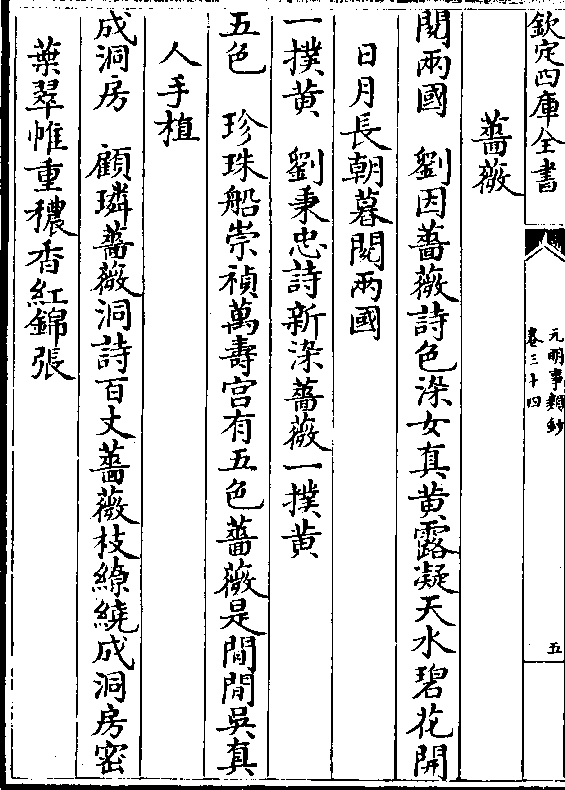 欽定四庫全書
元明事類鈔
卷三十四
五
薔薇
閱兩國　劉因薔薇詩色染女真黄露凝天水碧花開
日月長朝暮閱兩國
一撲黄　劉秉忠詩新染薔薇一撲黄
五色　珍珠船崇禎萬壽宫有五色薔薇是閒閒吳真
人手植
成洞房　顧璘薔薇洞詩百丈薔薇枝繚繞成洞房密
葉翠帷重穠香紅錦張